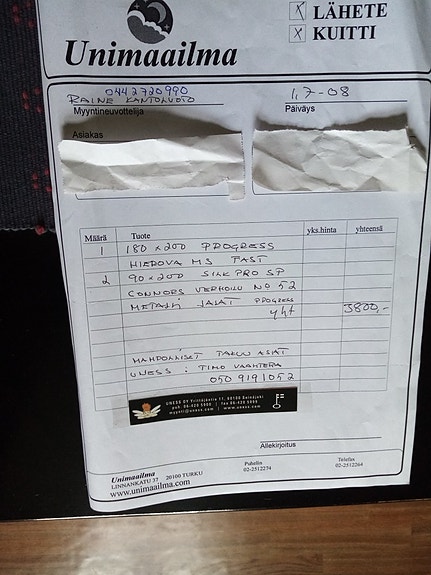 LÄHETE
KUITTI
Unimaailma
0442720990
RAINE KANTOLUOTO
1.7-08
Myyntineuvottelija
Päiväys
Asiakas
Määrä Tuote yks.hinta yhteensä
1 180x200 PROGRESS
HIEROVA MS FAST
2 90x200 SILK PRO SP
CONNORS VERHOILU NO 52
METALLI JALAT PROGRESS
yht 3800,-
MAHDOLLISET TAKUU ASIAT
UNESS : TIMO VAAHTERA
050 9191052
UNESS OY Yrittäjäntie 11, 60100 Seinäjoki
puh 06-420 5000 | fax 06-420 5008
myynti@uness.com | www.uness.com
Allekirjoitus
Unimaailma
LINNANKATU 37 20100 TURKU
www.unimaailma.com
Puhelin
02-2512274
Telefax
02-2512264